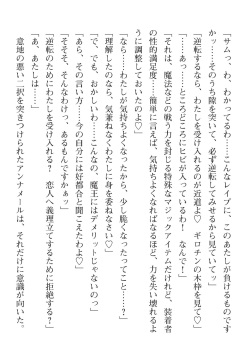 「サムっ、わ、わかってるわ……こんなレイプに、このあたしが負けるものです
かッ……そのうち隙を突いて、必ず逆転してみせるから見ていてッ」
「逆転するなら、わたしを受け入れるのが近道よ♡　ギロチンの木枠を見て♡」
「……あっ……ところどころにヒビが入っているわ！　なんで！」
「それは、魔法などの戦う力を封じる特殊なマジックアイテムだけれど、装着者
の性的満足度…簡単に言えば、気持ちよくなればなるほど、力を失い壊れるよ
うに調整しておいたのよ♡」
「なら……わたしが気持ちよくなったから、少し脆くなったってこと……？」
「理解したのなら、気兼ねなくわたしに身を委ねなさい♡」
「で、でも、おかしいわ……こんなの、魔王にはデメリットじゃないのっ」
「あら、その言い方……今の自分には好都合と聞こえたわよ♡」
「そそそ、そんなわけっ、あるもんですかぁッ」
「逆転のためにわたしを受け入れる？　恋人へ義理立てするために拒絶する？」
「あ、あたしは……」
意地の悪い二択を突きつけられたアンナメールは、それだけに意識が向いた。